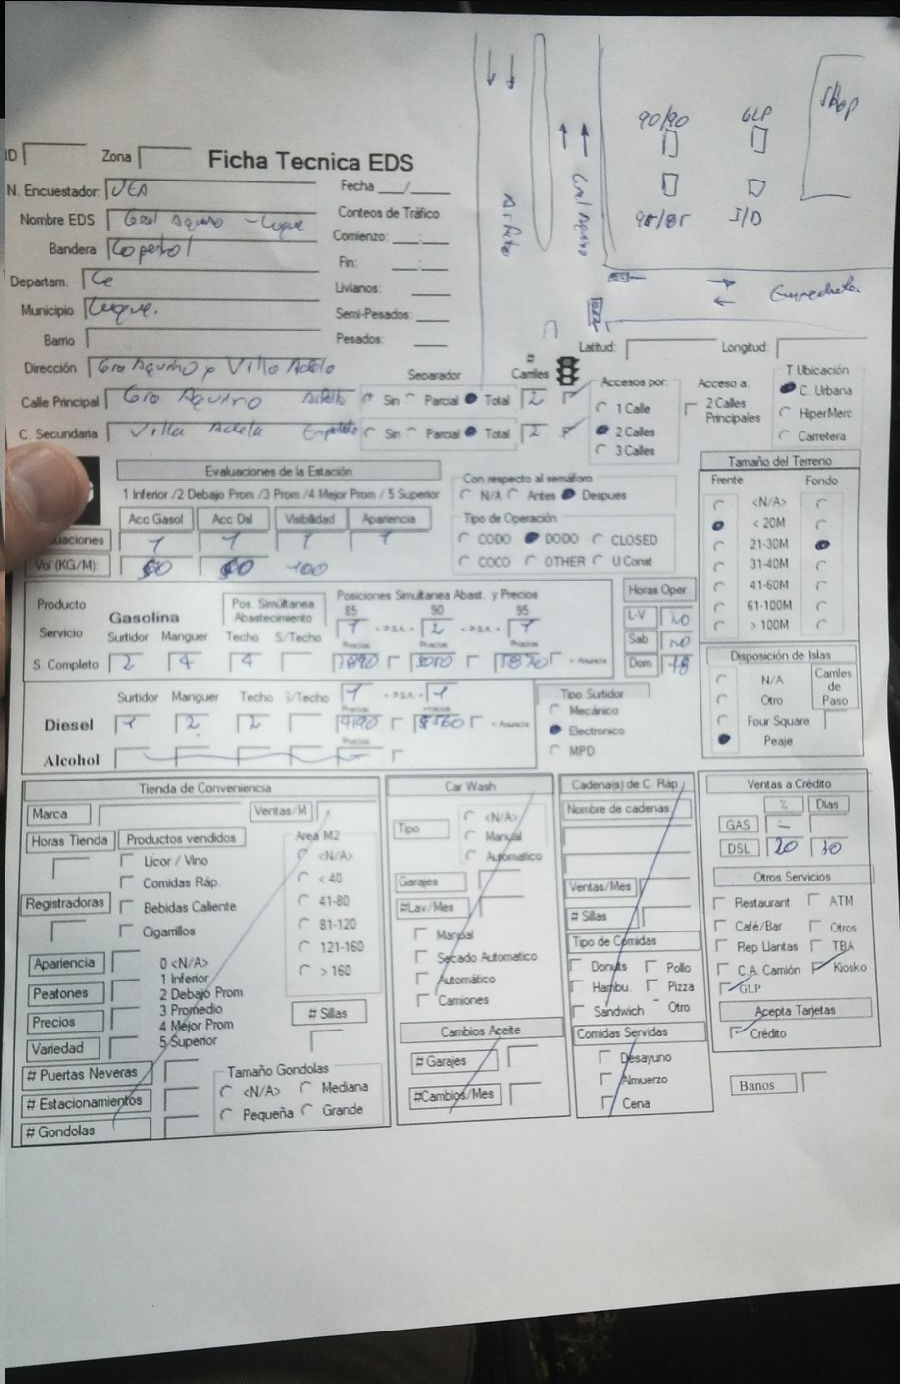 Shop
90/90
GLP
98/85
I/D
Gral Aquino
ID
Zona
Ficha Tecnica EDS
N. Encuestador:
Fecha __/__
Nombre EDS Gral Aquino - Luque
Conteos de Tráfico
Bandera Copetrol
Comienzo: __:__
Departam. Ce
Fin: __:__
Municipio Luque.
Livianos:
Semi-Pesados:
Barrio
Pesados:
Dirección Gra Aquino y Villa Adela
Latitud:
Longitud:
Calle Principal Gro Aquino
Separador
# Carriles
Sin Parcial Total 2
C. Secundaria Villa Adela
Sin Parcial Total 2
Accesos por:
1 Calle
2 Calles
3 Calles
Acceso a:
2 Calles Principales
T Ubicación
C. Urbana
HiperMerc
Carretera
Evaluaciones de la Estación
1 Inferior /2 Debajo Prom /3 Prom /4 Mejor Prom / 5 Superior
Acc Gasol Acc Dsl Visibilidad Apariencia
1 1 1 1
Vol (KG/M): 100
Con respecto al semáforo
N/A Antes Despues
Tipo de Operación
CODO DODO CLOSED
COCO OTHER U Const
Tamaño del Terreno
Frente Fondo
<N/A>
< 20M
21-30M
31-40M
41-60M
61-100M
> 100M
Producto
Gasolina
Pos. Simúltanea Abastecimiento
Posiciones Simultanea Abast. y Precios
85 90 95
1 2 1
Servicio Surtidor Manguer Techo S/Techo
Precios Precios Precios
S. Completo 2 4 4
Horas Oper
L-V
Sab
Dom 18
Surtidor Manguer Techo S/Techo 1 1
Diesel 1 2 2
Precios
Alcohol
Tipo Surtidor
Mecánico
Electronico
MPD
Disposición de Islas
N/A
Otro
Four Square
Peaje
Carriles de Paso
Tienda de Conveniencia
Marca
Ventas/M
Horas Tienda
Productos vendidos
Licor / Vino
Comidas Ráp.
Bebidas Caliente
Cigarrillos
Area M2
<N/A>
< 40
41-80
81-120
121-160
> 160
Registradoras
Apariencia
Peatones
Precios
Variedad
0 <N/A>
1 Inferior
2 Debajo Prom
3 Promedio
4 Mejor Prom
5 Superior
# Sillas
# Puertas Neveras
# Estacionamientos
# Gondolas
Tamaño Gondolas
<N/A> Mediana
Pequeña Grande
Car Wash
Tipo
<N/A>
Manual
Automatico
Garajes
#Lav/Mes
Manual
Secado Automatico
Automático
Camiones
Cambios Aceite
# Garajes
#Cambios/Mes
Cadena(s) de C. Ráp.
Nombre de cadenas
Ventas/Mes
# Sillas
Tipo de Comidas
Donuts Pollo
Hambu. Pizza
Sandwich Otro
Comidas Servidas
Desayuno
Almuerzo
Cena
Ventas a Crédito
% Dias
GAS -
DSL 20 30
Otros Servicios
Restaurant ATM
Café/Bar Otros
Rep Llantas TBA
C.A. Camión Kiosko
GLP
Acepta Tarjetas
Crédito
Banos